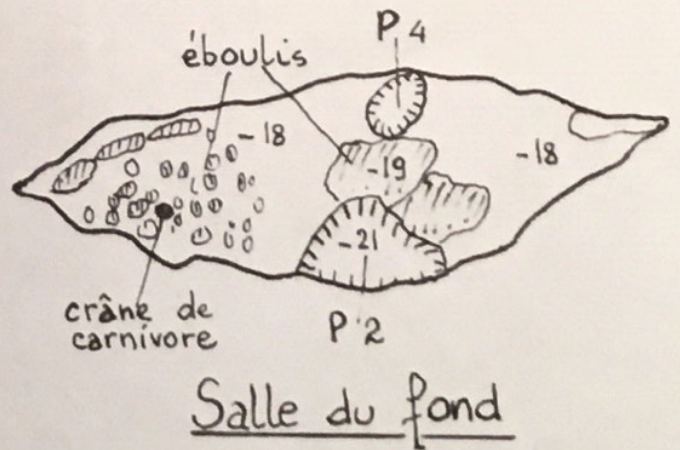 P 4
éboulis
-18
-18
-19
-21
crâne de
carnivore
P 2
Salle du fond